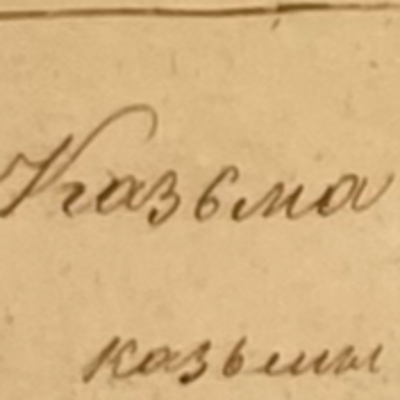 Казьма
казьмы